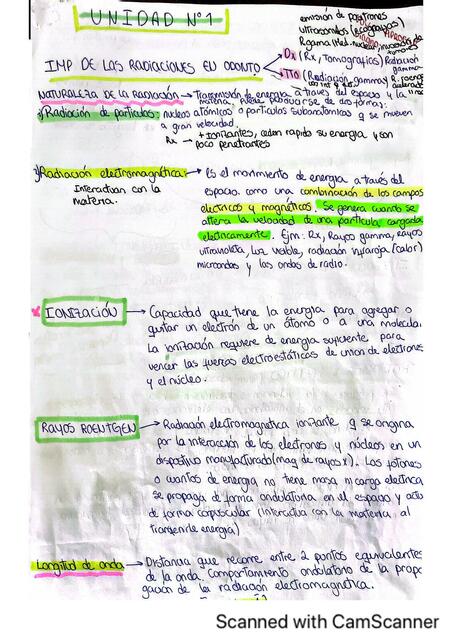 UNIDAD Nº1
emisión de positrones
ultrasonidos (ecografias)
R. gama (Med. nuclear, invasión de tumores
IMP DE LAS RADIACIONES EN ODONTO
Dx (Rx, Tomografias) Radiación gamma
TTO (Radiación gamma y R. roengen
NATURALEZA DE LA RADIACIÓN → Transmisión de energia a través del espacio y la
materia, puede producirse de dos formas:
Radiación de particulas: nucleos atómicos o particulas subatomicas q se mueven
a gran velocidad.
Rx → + ionizantes, ceden rapido su energia y son
poco penetrantes
Radiación electromagnética: → Es el movimiento de energia a través del
Interactuan con la
materia.
espacio como una combinación de los campos
electricos y magnéticos. Se genera cuando se
altera la velocidad de una particula cargada
electricamente. Ejm: Rx, Rayos gamma, rayos
ultravioleta, Luz visible, radiación infraroja (calor)
microondas y las ondas de radio.
IONIZACIÓN → Capacidad que tiene la energia para agregar o
quitar un electrón de un átomo o a una molecula.
La ionización requiere de energia suficiente para
vencer las fuerzas electroestáticas de union de electrones
y el núcleo.
RAYOS ROENTGEN → Radiación electromagnetica ionizante q se origina
por la interacción de los electrones y núcleos en un
dispositivo manufacturado (maq de rayos x). Los fotones
o cuantos de energia no tiene masa ni carga electrica
se propaga de forma ondulatoria en el espacio y actu
de forma corpuscular (interactua con la materia al
transferirle energia)
Longitud de onda → Distancia que recorre entre 2 puntos equivalentes
de la onda. Comportamiento ondulatorio de la propa
gación de la radiación electromagnética.
Scanned with CamScanner